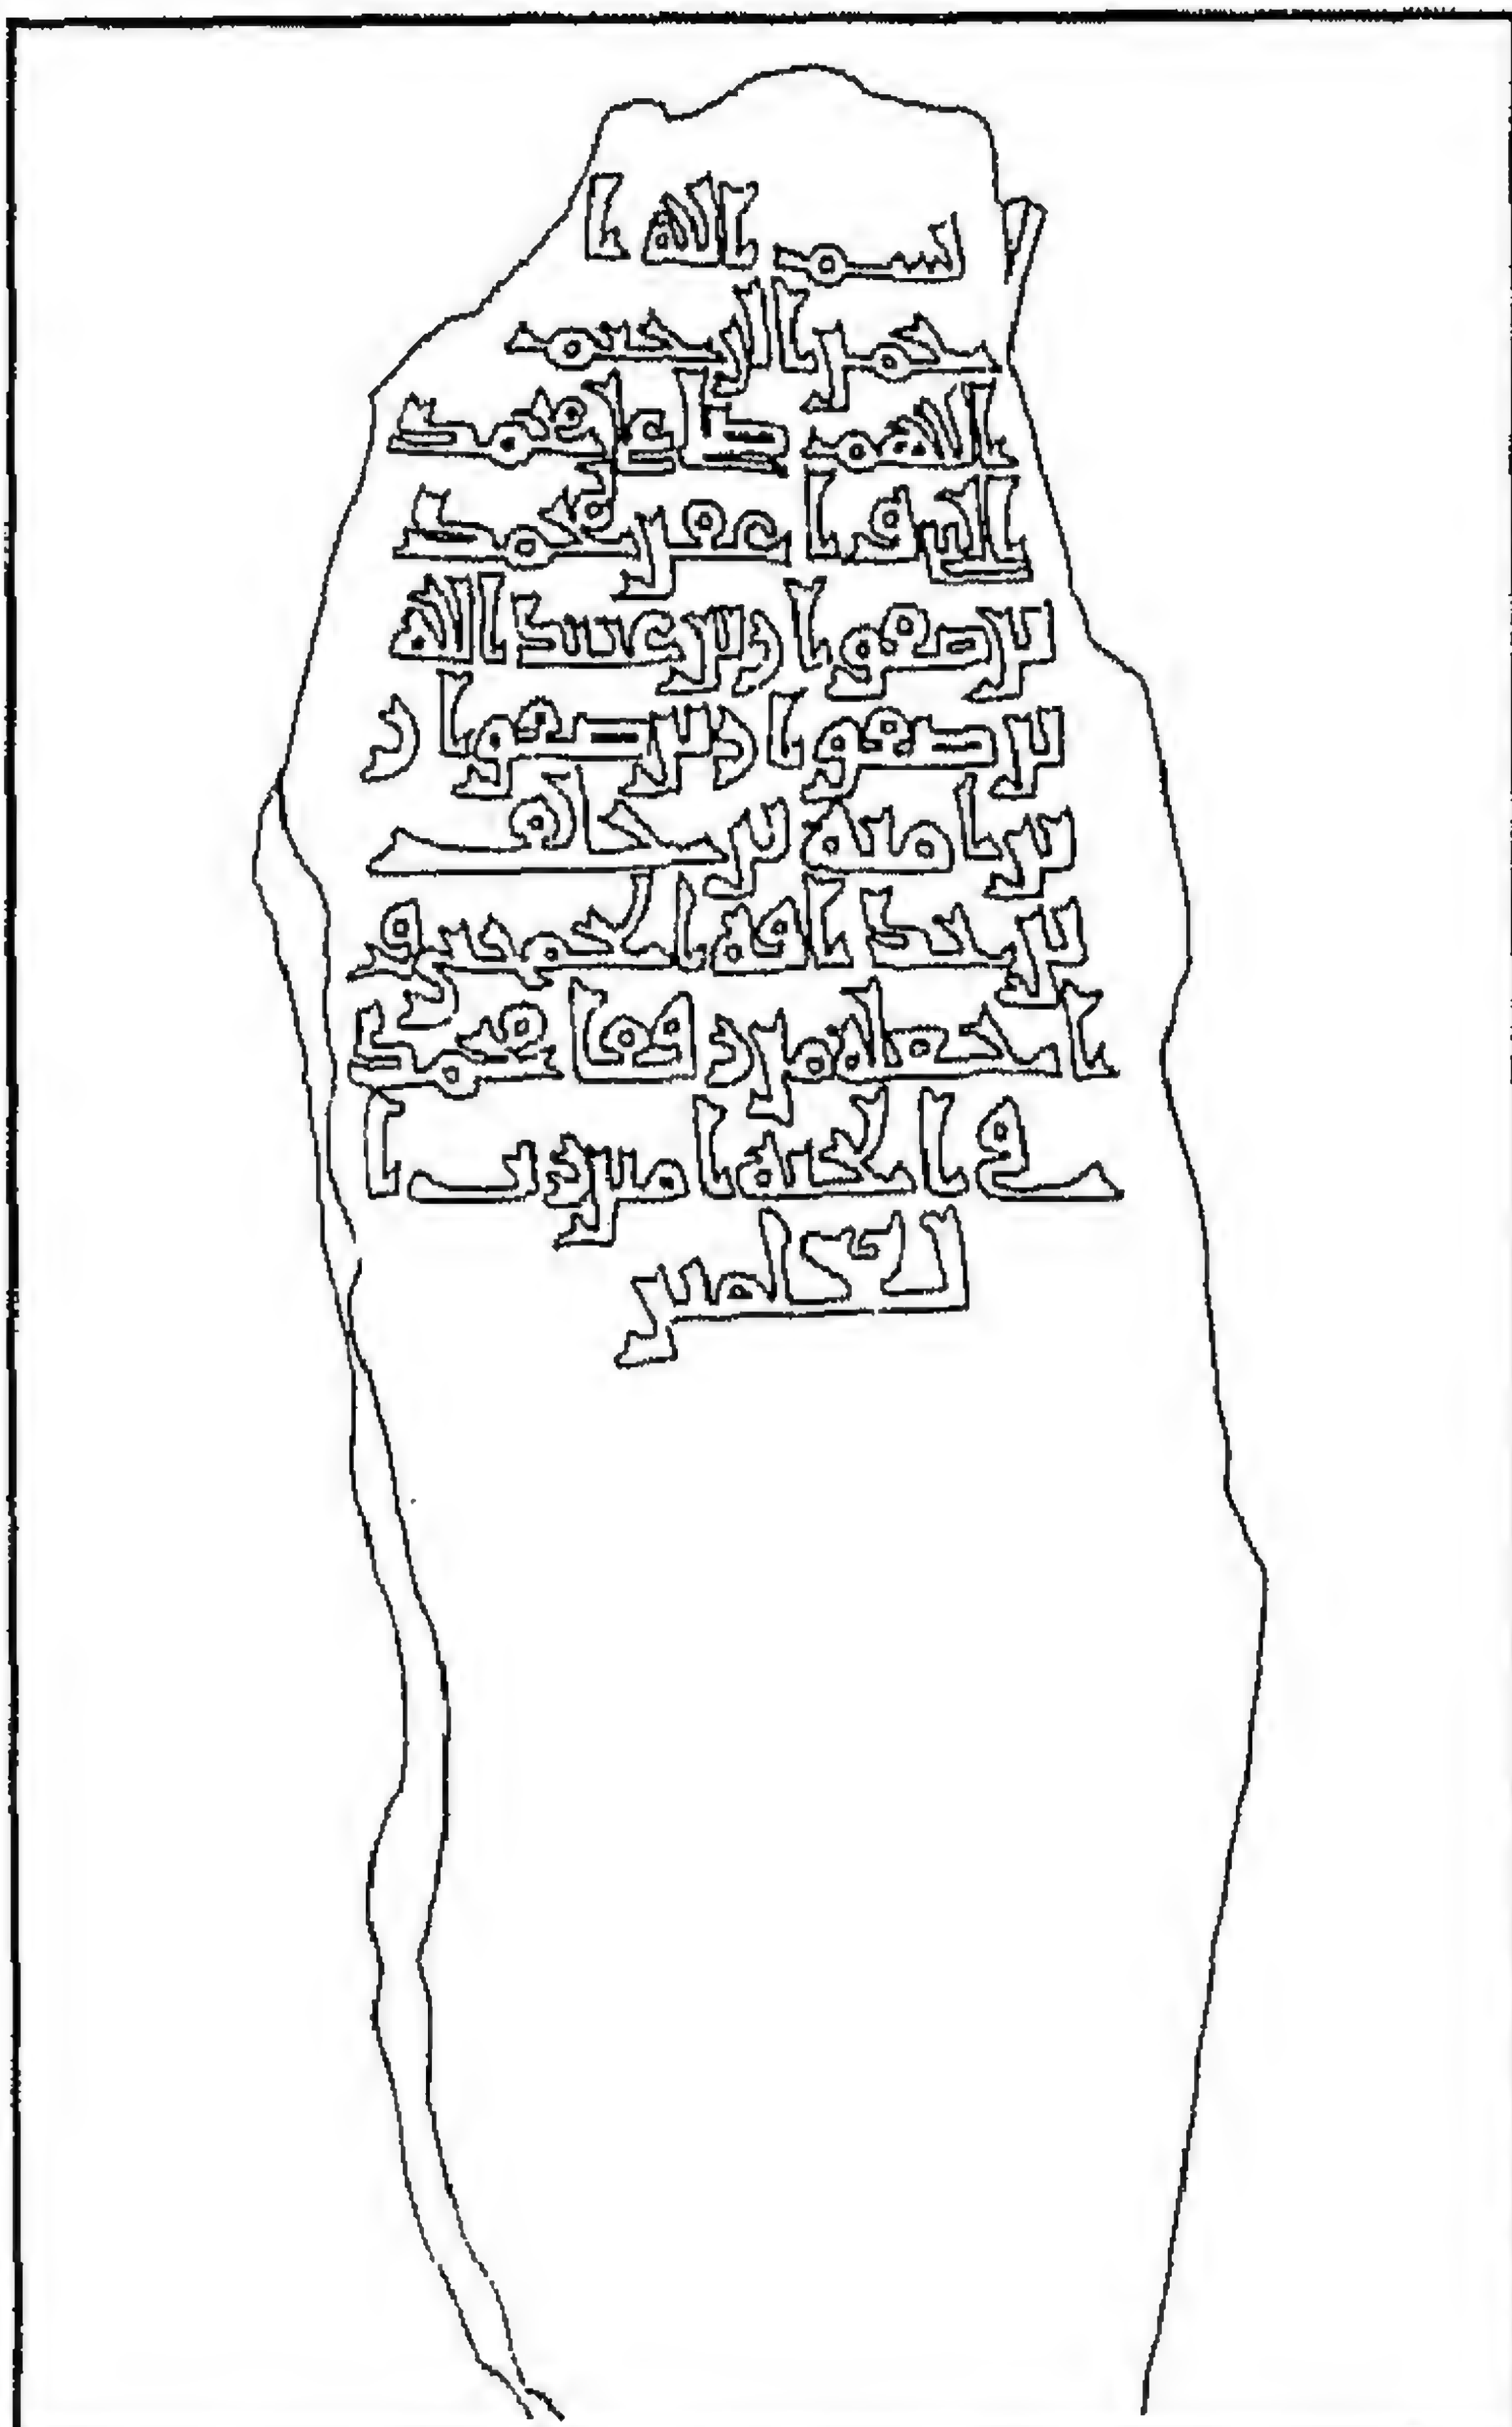 بسم الله ا
حمن الرحيم
اللهم صل على محمد
النبي واغفر لمحمد
بن صفوان بن عبد الله
بن صفوان بن صفوان
بن امية بن خلف
بن حذافة الجمحي و
اجعله من رفقا محمد
في الجنة امين رب ا
لعلمين